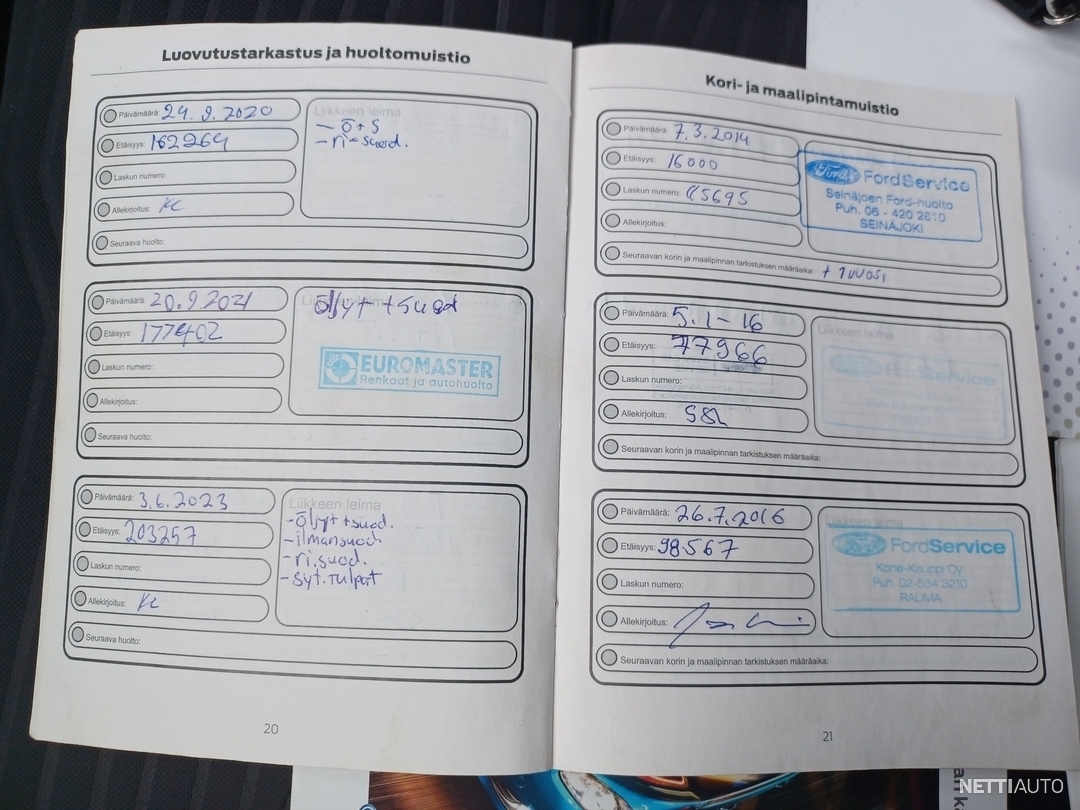 Luovutustarkastus ja huoltomuistio
Päivämäärä: 24.9.2020
Etäisyys: 162964
Laskun numero:
Allekirjoitus: KC
Seuraava huolto:
Liikkeen leima
- ö+S
- ri-suod.
Päivämäärä: 20.9.2021
Etäisyys: 177402
Laskun numero:
Allekirjoitus:
Seuraava huolto:
öljyt + suod
EUROMASTER
Renkaat ja autohuolto
Päivämäärä: 3.6.2023
Etäisyys: 203257
Laskun numero:
Allekirjoitus: KC
Seuraava huolto:
Liikkeen leima
- öljyt + suod.
- ilmansuod
- ri.suod.
- syt.tulpat
20
Kori- ja maalipintamuistio
Päivämäärä: 7.3.2014
Etäisyys: 16000
Laskun numero: 85695
Allekirjoitus:
Seuraavan korin ja maalipinnan tarkistuksen määräaika: + 1 vuosi
Ford FordService
Seinäjoen Ford-huolto
Puh. 06 - 420 2810
SEINÄJOKI
Päivämäärä: 5.1-16
Etäisyys: 77966
Laskun numero:
Allekirjoitus:
Seuraavan korin ja maalipinnan tarkistuksen määräaika:
Liikkeen leima
FordService
Päivämäärä: 26.7.2016
Etäisyys: 98567
Laskun numero:
Allekirjoitus:
Seuraavan korin ja maalipinnan tarkistuksen määräaika:
Liikkeen leima
Ford FordService
Kone-Kauppi Oy
Puh. 02-534 3210
RAUMA
21
NETTIAUTO